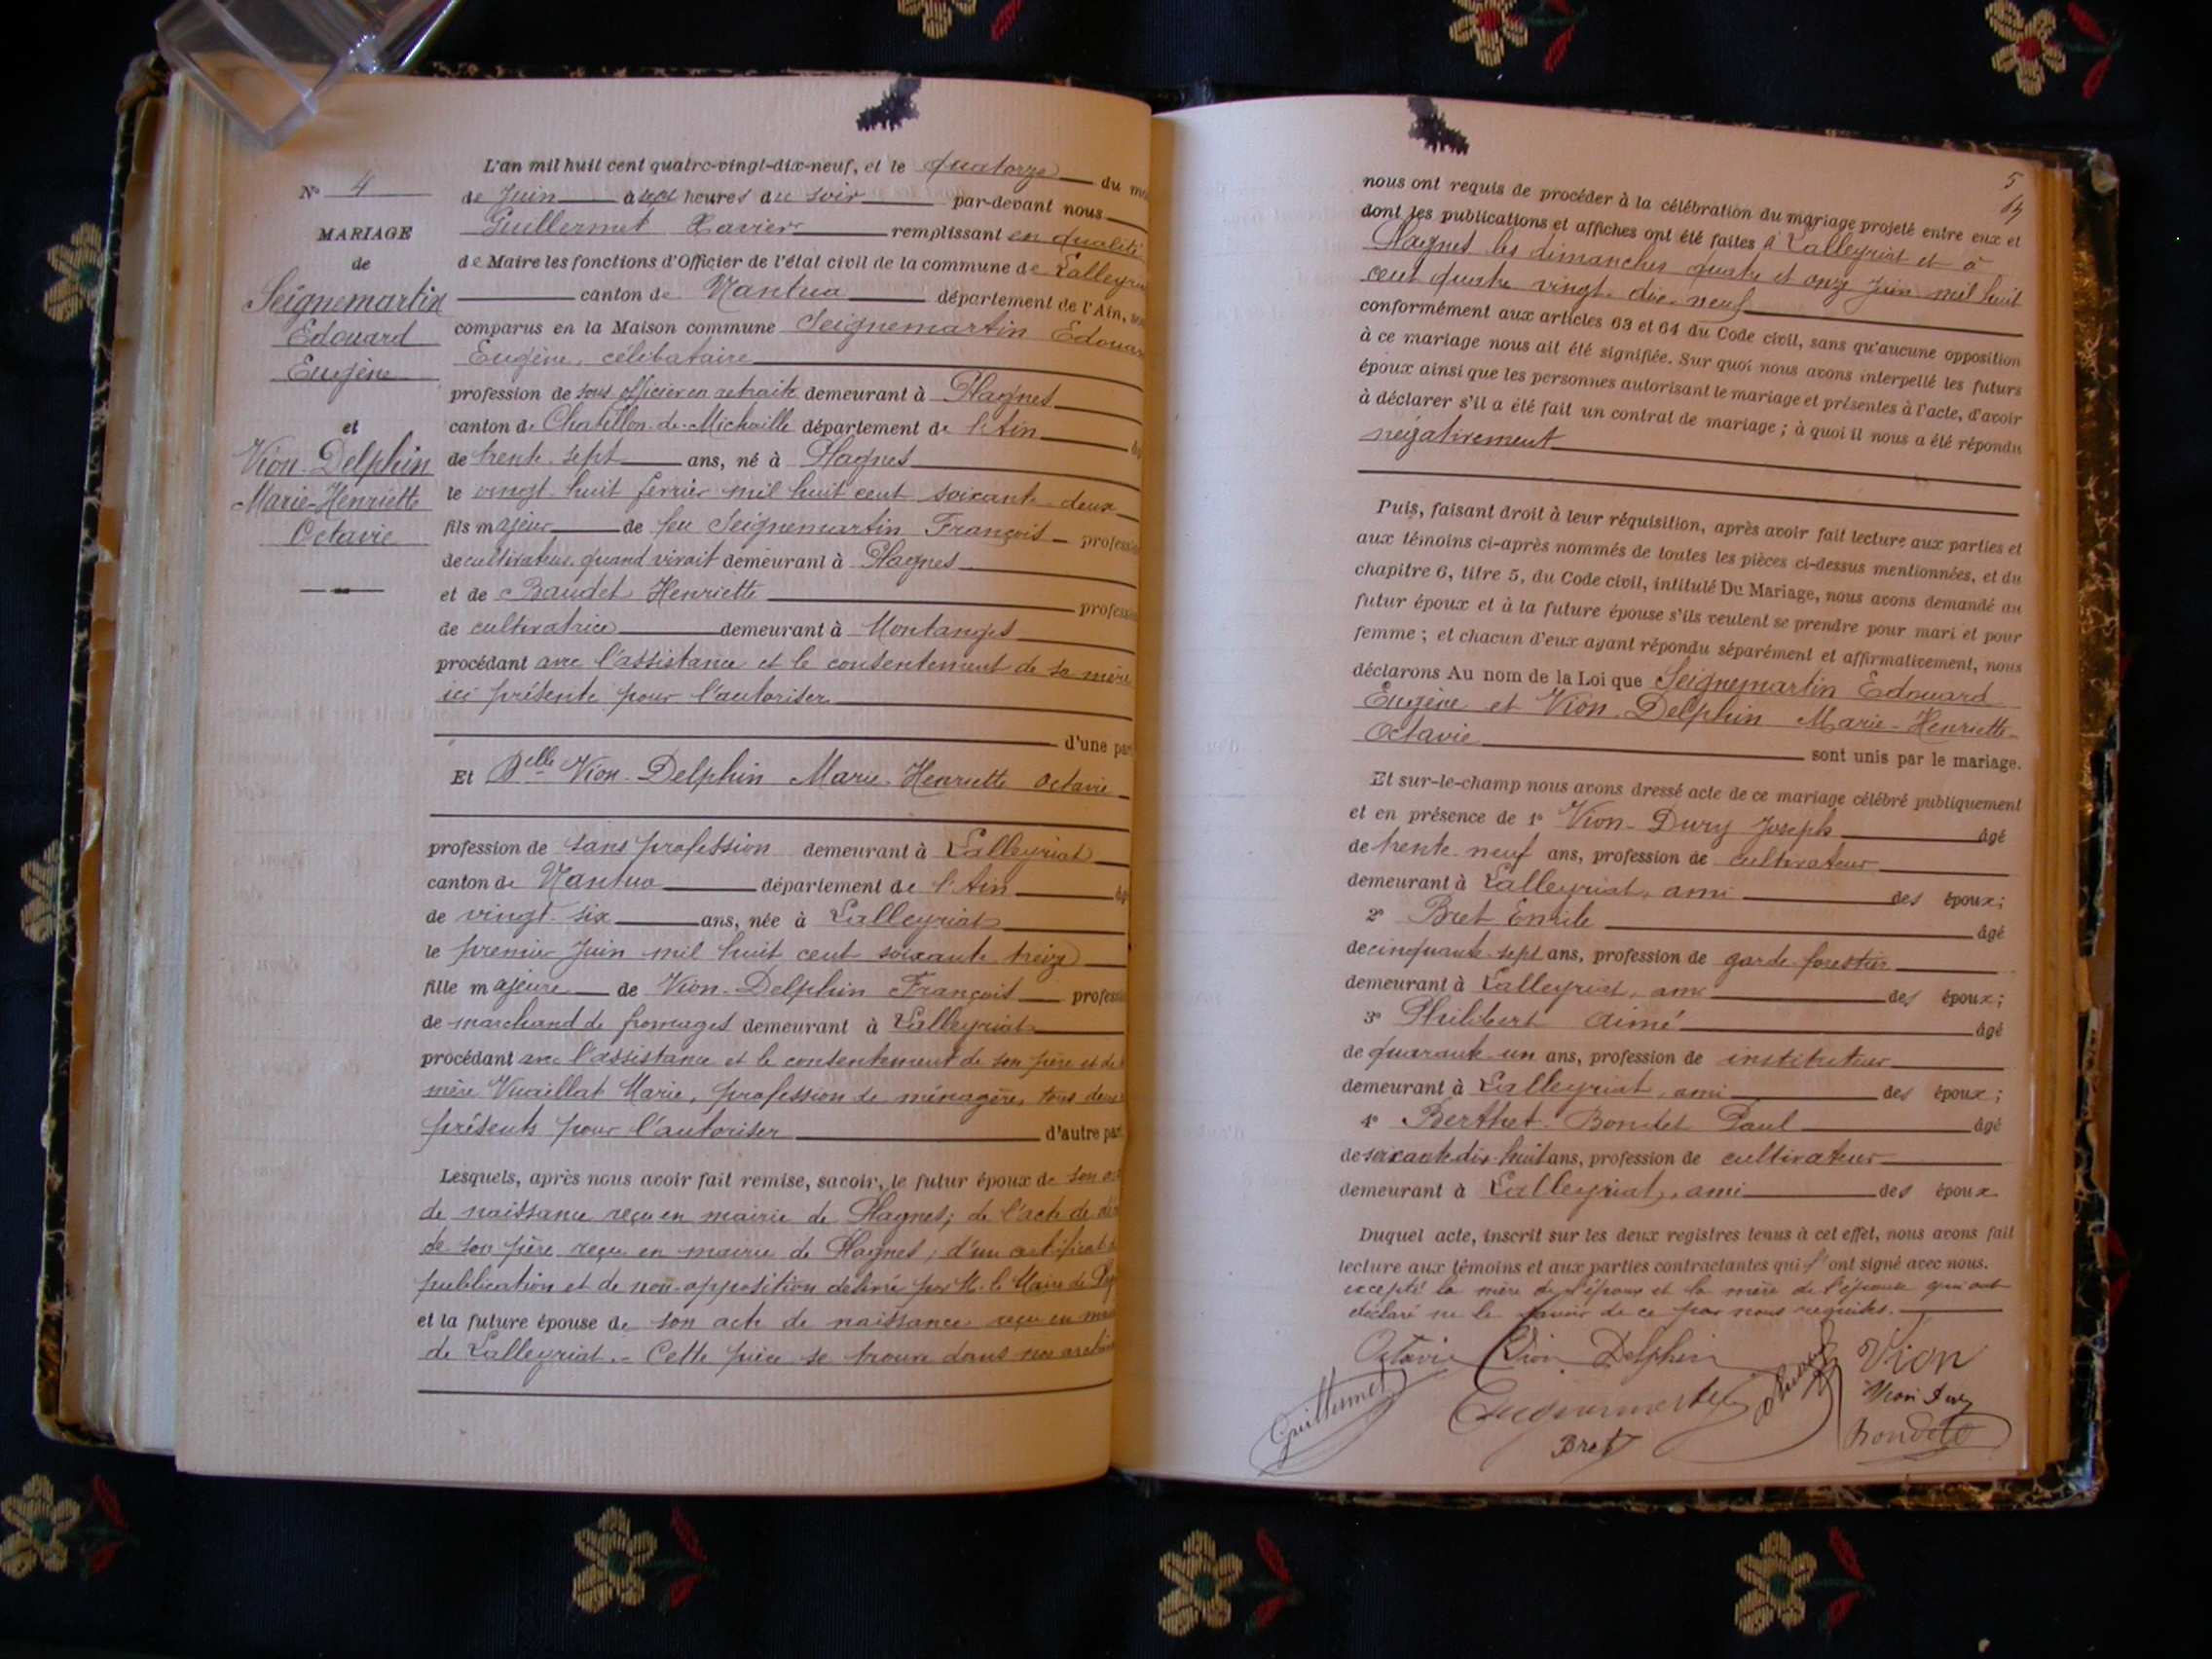 N° 4
MARIAGE
de
Seignemartin
Edouard
Eugène
et
Vion-Delphin
Marie-Henriette
Octavie
L'an mil huit cent quatre-vingt-dix-neuf, et le quatorze du
de Juin à sept heures du soir par-devant nous
Guillermet Xavier remplissant en qualité
de Maire les fonctions d'Officier de l'état civil de la commune de
canton de Nantua département de l'Ain,
comparus en la Maison commune Seignemartin
Eugène, célibataire
profession de sous officier en retraite demeurant à Plagnes
canton de Chatillon-de-Michaille département de l'Ain
de trente-sept ans, né à Plagnes
le vingt-huit février mil huit cent soixante-deux
fils majeur de feu Seignemartin François
de cultivateur quand vivait demeurant à Plagnes
et de Baudet Henriette
de cultivatrice demeurant à Montanges
procédant avec l'assistance et le consentement de sa mère
ici présente pour l'autoriser
d'une
Et Delle Vion-Delphin Marie-Henriette Octavie
profession de sans profession demeurant à Lalleyriat
canton de Nantua département de l'Ain
de vingt-six ans, née à Lalleyriat
le premier Juin mil huit cent soixante treize
fille majeure de Vion-Delphin François
de marchand de fromages demeurant à Lalleyriat
procédant avec l'assistance et le consentement de son père et de
mère Vuaillat Marie, profession de ménagère, tous deux
présents pour l'autoriser d'autre
Lesquels, après nous avoir fait remise, savoir, le futur époux de son
de naissance reçu en mairie de Plagnes; de l'acte de
de son père reçu en mairie de Plagnes; d'un certificat
publication et de non-opposition délivré par M. le Maire de
et la future épouse de son acte de naissance reçu en
de Lalleyriat. - Cette pièce se trouve dans nos
5
nous ont requis de procéder à la célébration du mariage projeté entre eux et
dont les publications et affiches ont été faites à Lalleyriat et à
Plagnes les dimanches quatre et onze Juin mil huit
cent quatre vingt-dix-neuf
conformément aux articles 63 et 64 du Code civil, sans qu'aucune opposition
à ce mariage nous ait été signifiée. Sur quoi nous avons interpellé les futurs
époux ainsi que les personnes autorisant le mariage et présentes à l'acte, d'avoir
à déclarer s'il a été fait un contrat de mariage ; à quoi il nous a été répondu
négativement
Puis, faisant droit à leur réquisition, après avoir fait lecture aux parties et
aux témoins ci-après nommés de toutes les pièces ci-dessus mentionnées, et du
chapitre 6, titre 5, du Code civil, intitulé Du Mariage, nous avons demandé au
futur époux et à la future épouse s'ils veulent se prendre pour mari et pour
femme ; et chacun d'eux ayant répondu séparément et affirmativement, nous
déclarons Au nom de la Loi que Seignemartin Edouard
Eugène et Vion-Delphin Marie-Henriette-
Octavie
sont unis par le mariage.
Et sur-le-champ nous avons dressé acte de ce mariage célébré publiquement
et en présence de 1° Vion-Dury Joseph âgé
de trente-neuf ans, profession de cultivateur
demeurant à Lalleyriat, ami des époux;
2° Bret Emile âgé
de cinquante-sept ans, profession de garde-forestier
demeurant à Lalleyriat, ami des époux;
3° Philibert Aimé âgé
de quarante-un ans, profession de instituteur
demeurant à Lalleyriat, ami des époux;
4° Berthet-Bondet Paul âgé
de soixante-dix-huit ans, profession de cultivateur
demeurant à Lalleyriat, ami des époux
Duquel acte, inscrit sur les deux registres tenus à cet effet, nous avons fait
lecture aux témoins et aux parties contractantes qui l'ont signé avec nous.
excepté la mère de l'époux et la mère de l'épouse qui ont
déclaré ne le savoir de ce par nous requises.
Octavie Vion Delphin
Vion
Guillermet
Seignemartin
Vion Dury
Bret
Bondet